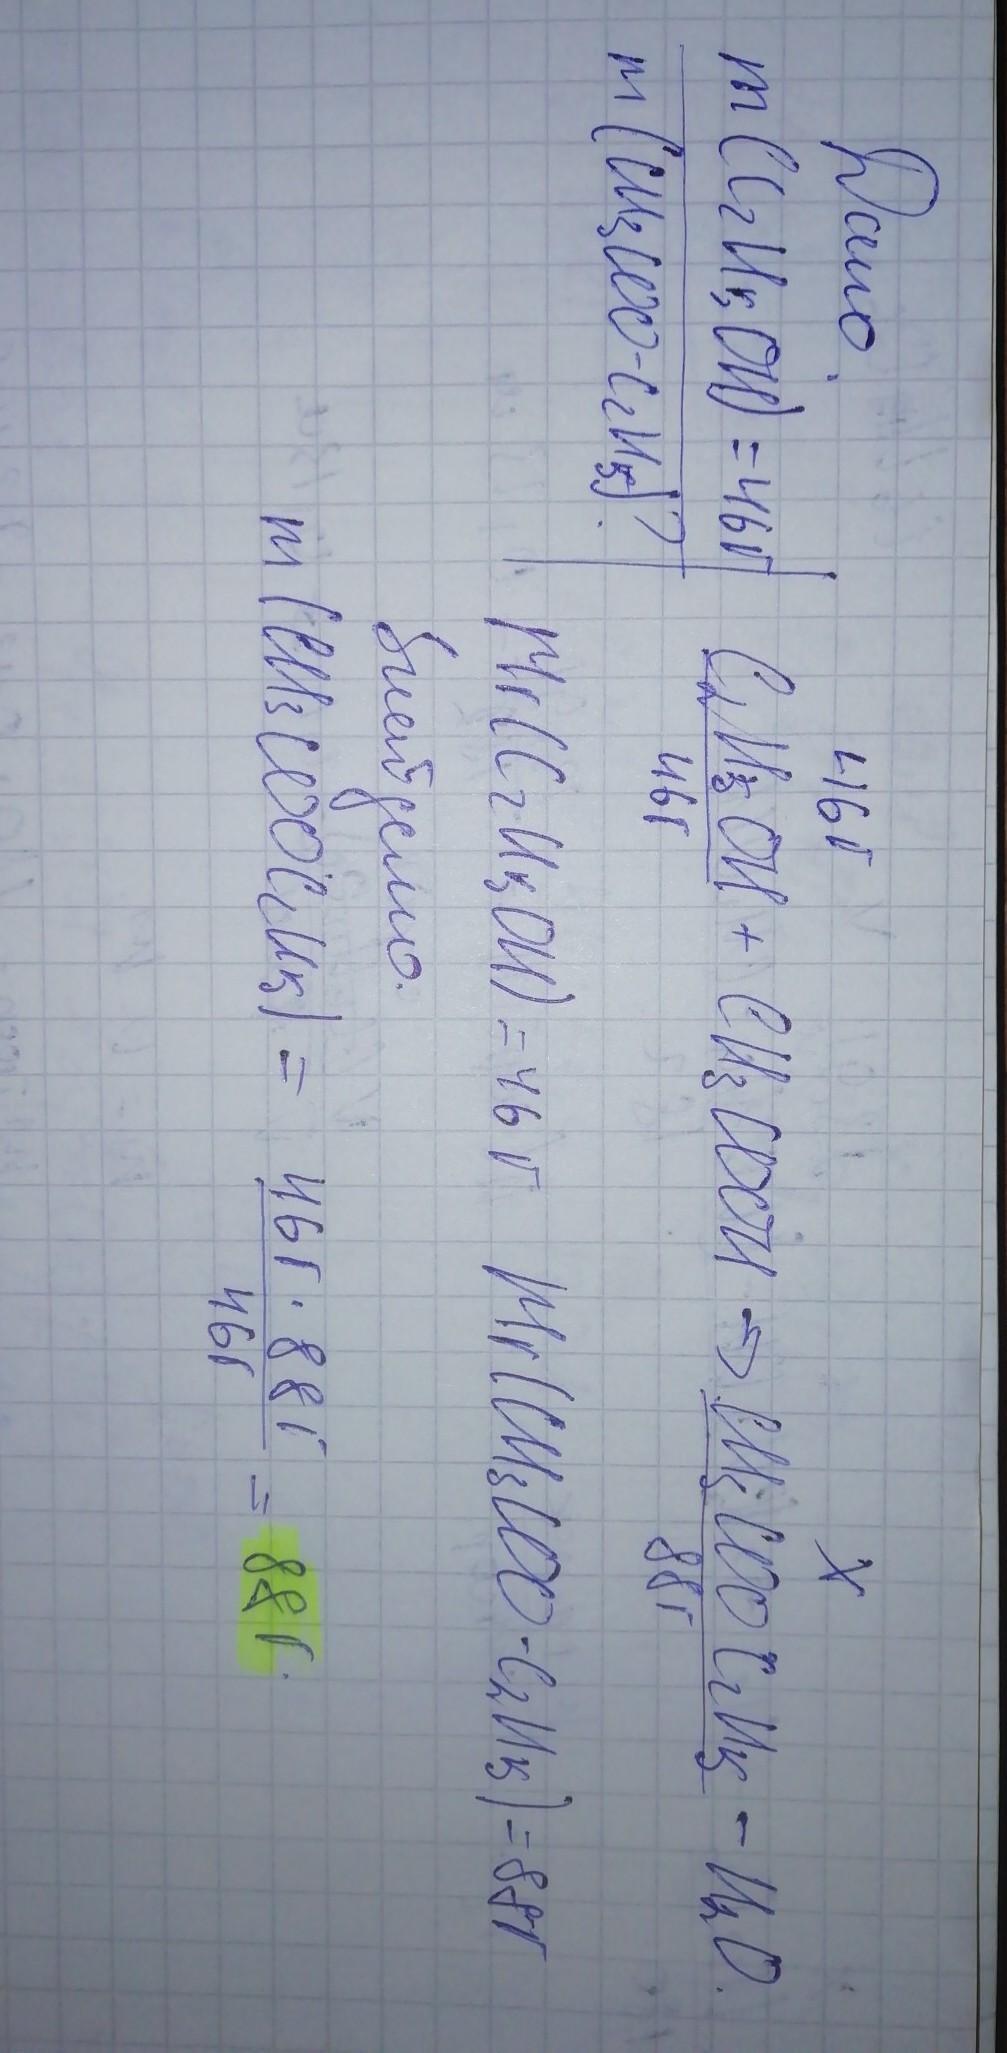 Дано:
m(C₂H₅OH) = 46г
m(CH₃COO-C₂H₅)?
46г X
C₂H₅OH + CH₃COOH → CH₃COOC₂H₅ - H₂O.
46г 88г
Mr(C₂H₅OH) = 46г Mr(CH₃COO-C₂H₅) = 88г
m(CH₃COOC₂H₅) = 46г · 88г / 46г = 88г.